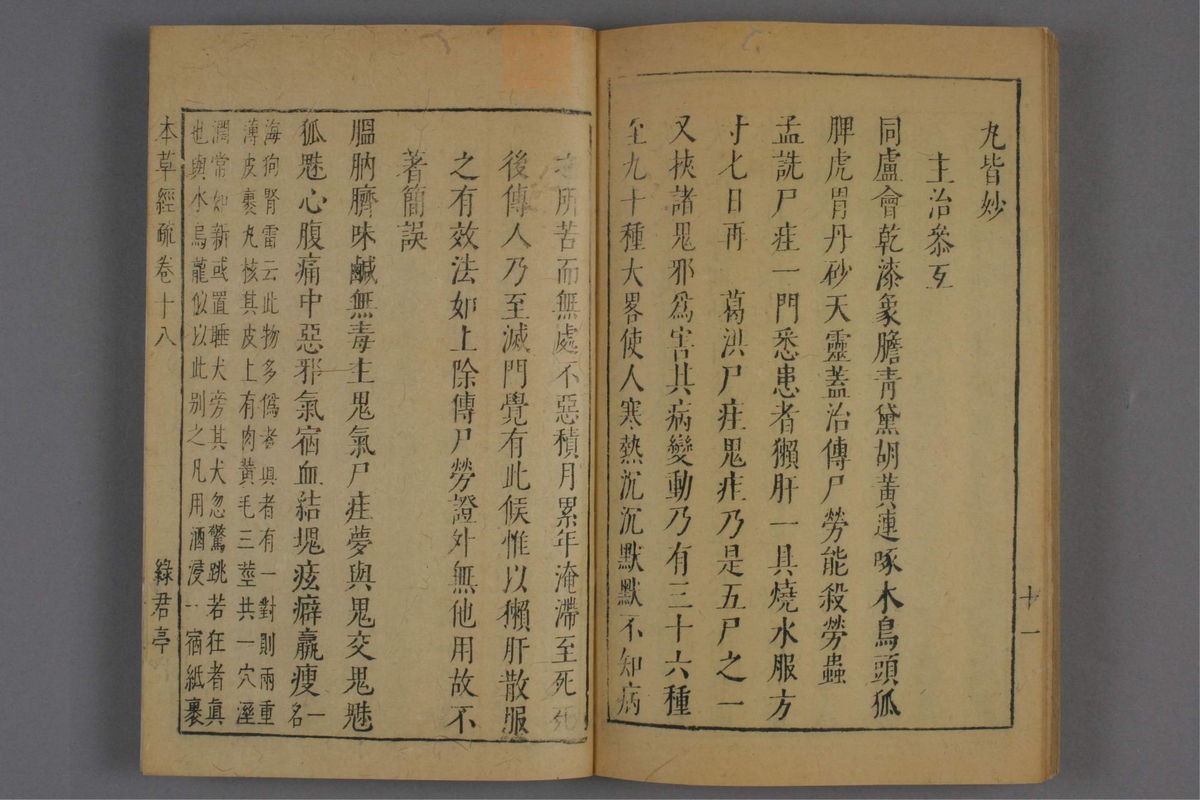 丸皆妙
主治叅互
同盧會乾漆象膽青黛胡黃連啄木鳥頭狐
脾虎胃丹砂天靈蓋治傳尸勞能殺勞蟲
孟詵尸疰一門悉患者獺肝一具燒水服方
寸匕日再 葛洪尸疰鬼疰乃是五尸之一
又挾諸鬼邪爲害其病變動乃有三十六種
至九十種大畧使人寒熱沉沉默默不知病
之所苦而無處不惡積月累年淹滯至死死
後傳人乃至滅門覺有此候惟以獺肝散服
之有效法如上除傳尸勞證外無他用故不
著簡誤
膃肭臍味鹹無毒主鬼氣尸疰夢與鬼交鬼魅
狐魅心腹痛中惡邪氣宿血結塊痃癖羸瘦一名
海狗腎雷云此物多僞者眞者有一對則兩重
薄皮裹丸核其皮上有肉黃毛三莖共一穴溼
潤常如新或置睡犬旁其犬忽驚跳若狂者眞
也與水烏龍似以此别之凡用酒浸一宿紙裹
本草經疏卷十八
綠君亭
十一